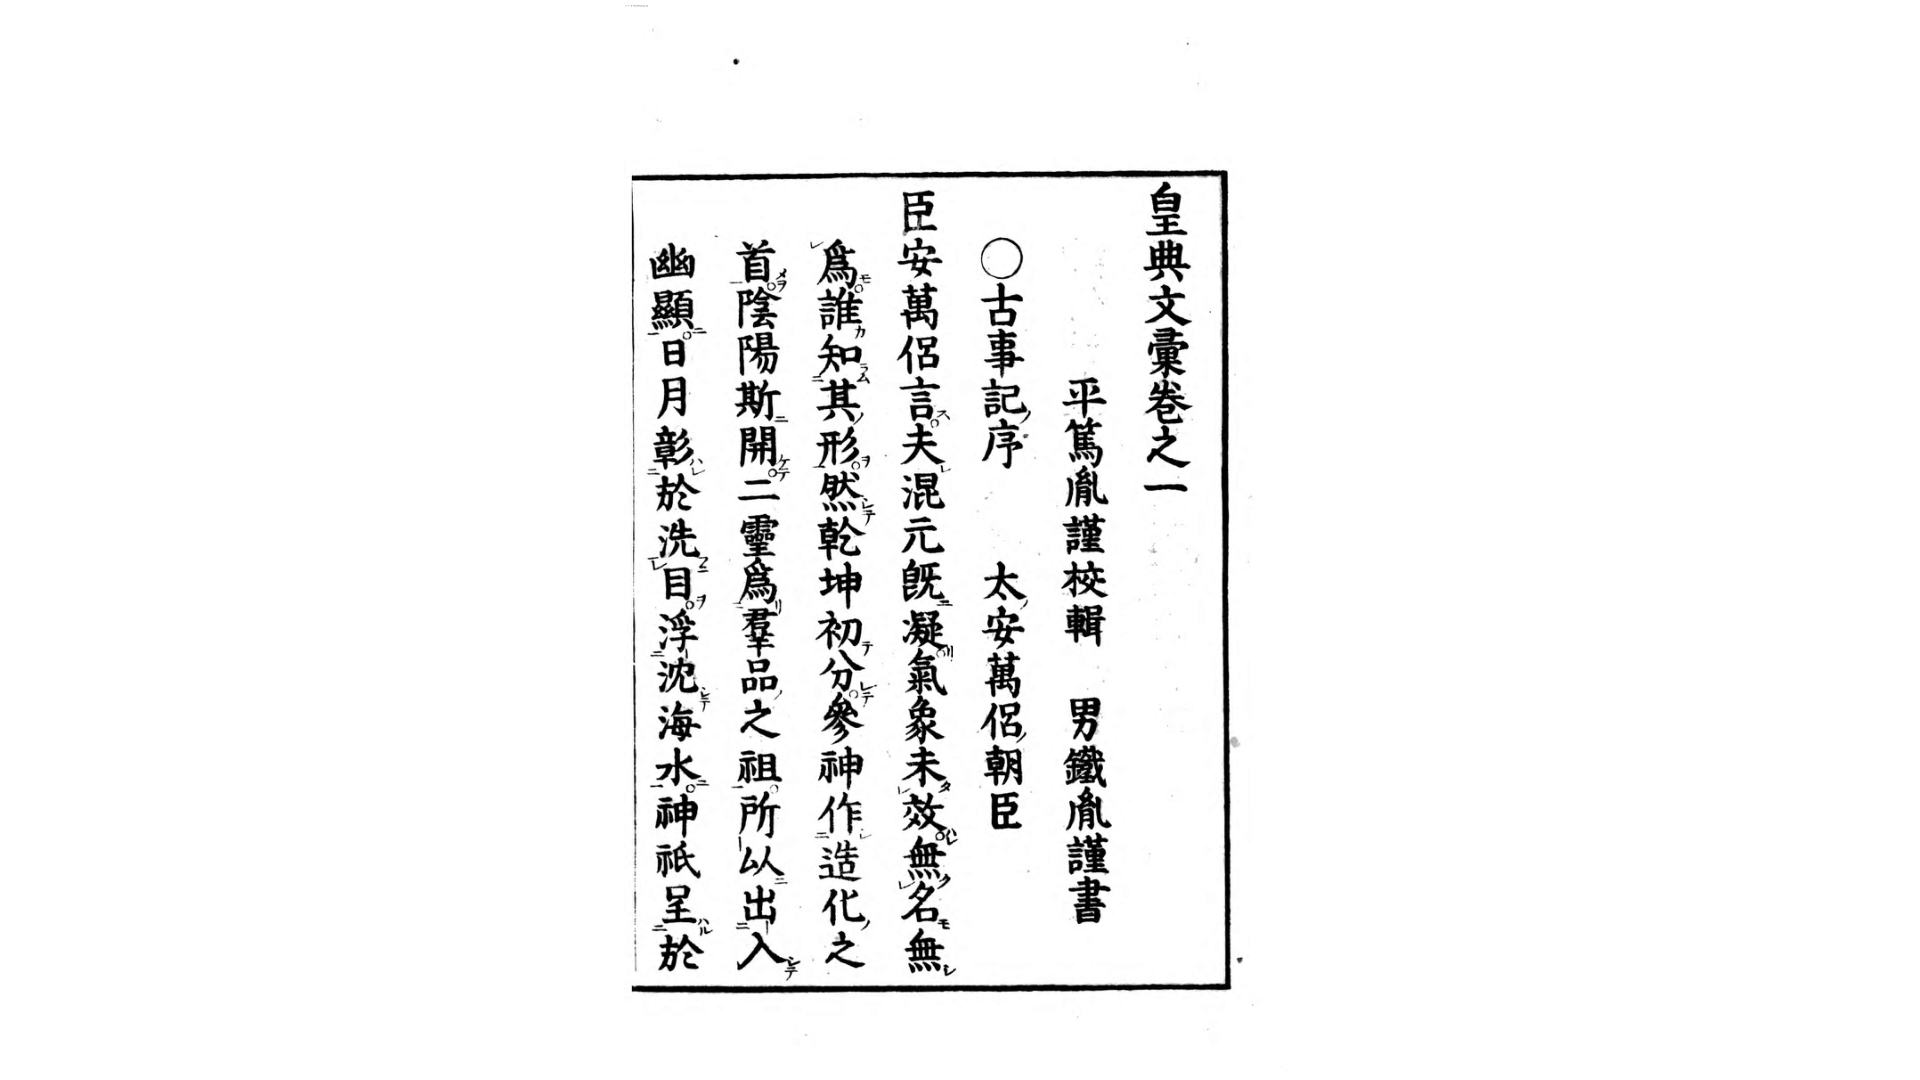 皇典文彙卷之一
平篤胤謹校輯　男鐵胤謹書
◯古事記序　太安萬侶朝臣
臣安萬侶言夫混元既凝氣象未效無名無
爲誰知其形然乾坤初分參神作造化之
首陰陽斯開二靈爲羣品之祖所以出入
幽顯日月彰於洗目浮沈海水神祇呈於